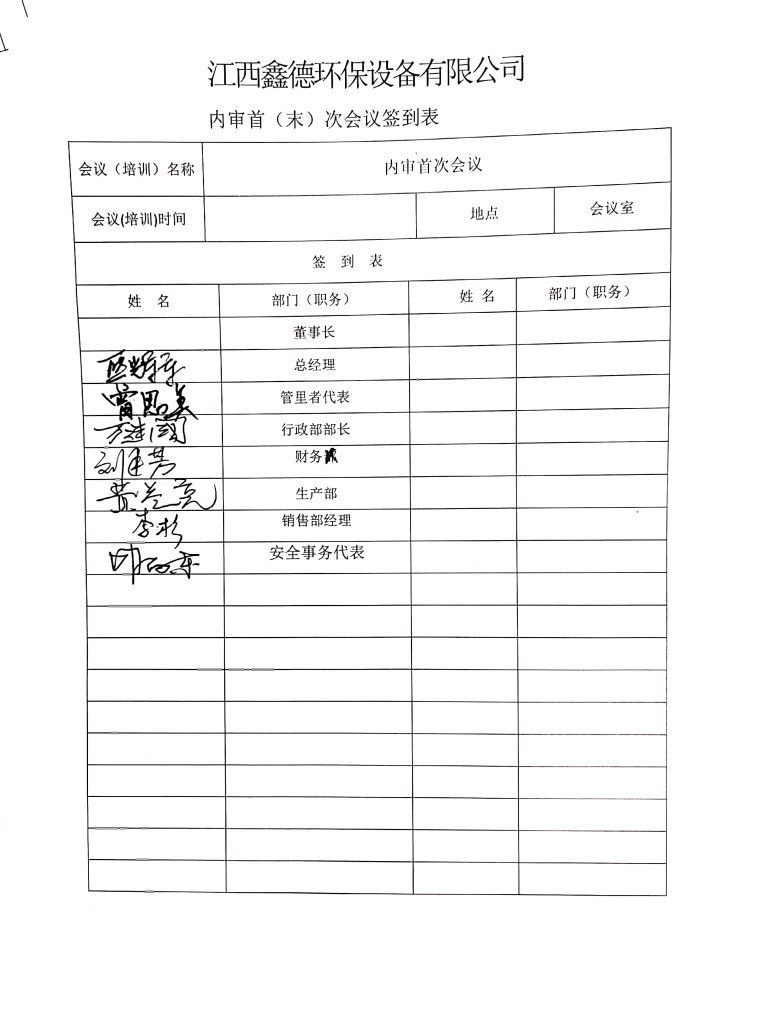 江西鑫德环保设备有限公司
内审首（末）次会议签到表
会议（培训）名称 内审首次会议
会议(培训)时间 地点 会议室
签 到 表
姓 名 部门（职务） 姓 名 部门（职务）
董事长
总经理
雷思美 管里者代表
万建国 行政部部长
财务
生产部
李杉 销售部经理
安全事务代表